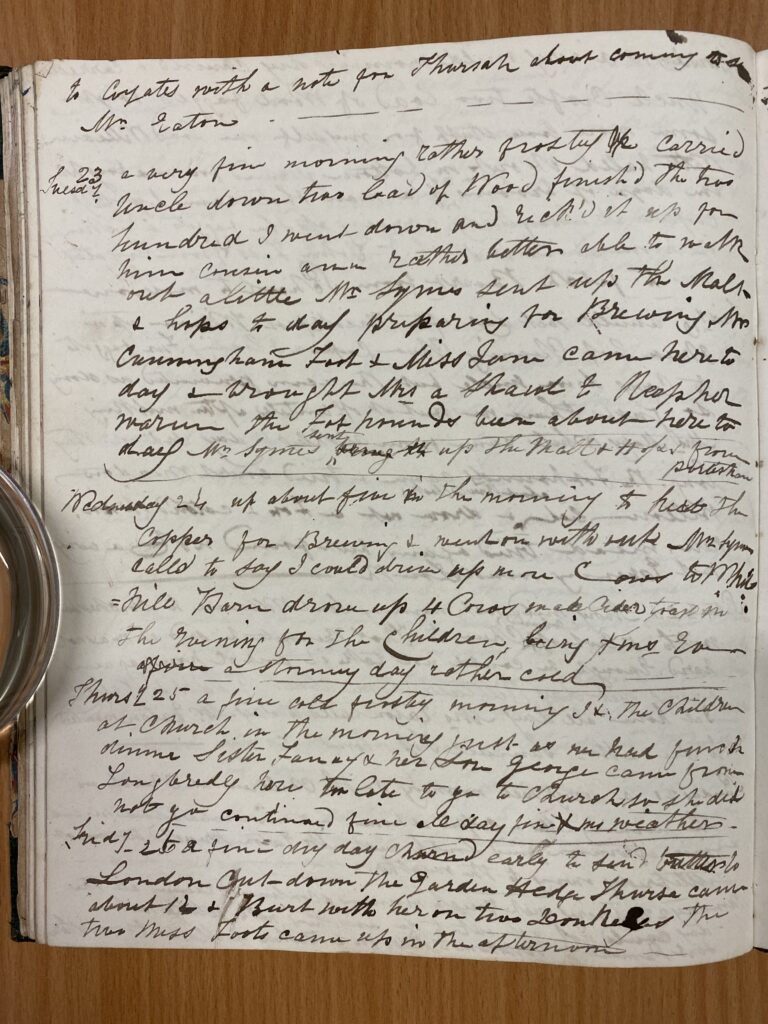 to Coyates with a note for Thursah about coming to a
Mr Eaton
Tuesdy 23 a very fine morning rather frosty We carried
Uncle down two load of Wood finish'd the two
hundred I went down and reck'd it up for
him cousin ann rather better able to walk
out a little Mr Symes sent up the Malt
& hops to day preparing for Brewing Mrs
Cunningham Foot & Miss Jane came here to
day & brought Mrs a Shawl to Keep her
warm the Fox hounds been about here to
day Mr Symes sent up the Malt & Hops from
Wednesday 24 up about five in the morning to heat the
Copper for Brewing & went on with Mr Symes
calld to say I could drive up more Cows to White
=Hill Barn drove up 4 Cows make Cider toast in
the Evening for the Children, being Xms Eve
a stormy day rather cold
Thursd 25 a fine cold frosty morning I & the Children
at Church in the morning just as we had finish
dinner Sister Fanny & her Son George came from
Longbredy here too late to go to Church so she did
not go continued fine all day fine Xms weather
Fridy 26 a fine dry day Churnd early to send butter to
London Cut down the Garden Hedge Thursa came
about 12 & Burt with her on two Donkeys the
two Miss Foots came up in the afternoon